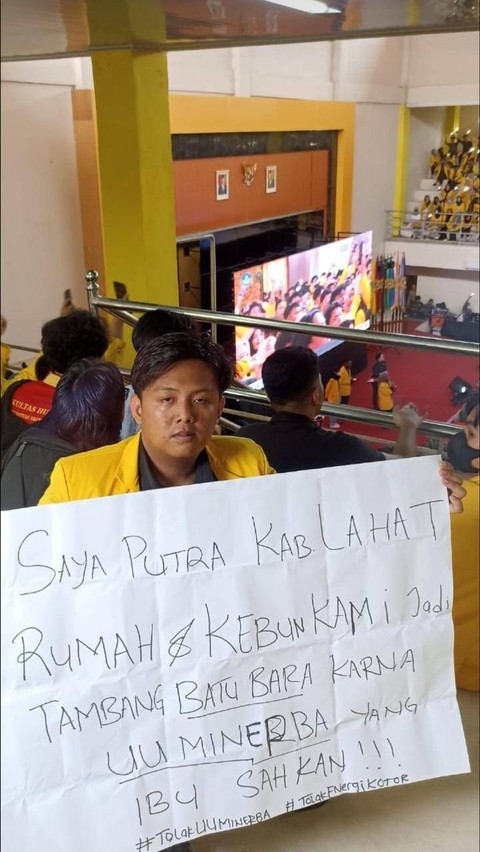 KULTAS HU
SAYA PUTRA KAB. LAHAT
RUMAH & KEBUN KAMI Jadi
TAMBANG BATU BARA KARNA
UU MINERBA YANG
IBU SAHKAN!!!
#TolakUUMINERBA #TolakENergiKOTOR